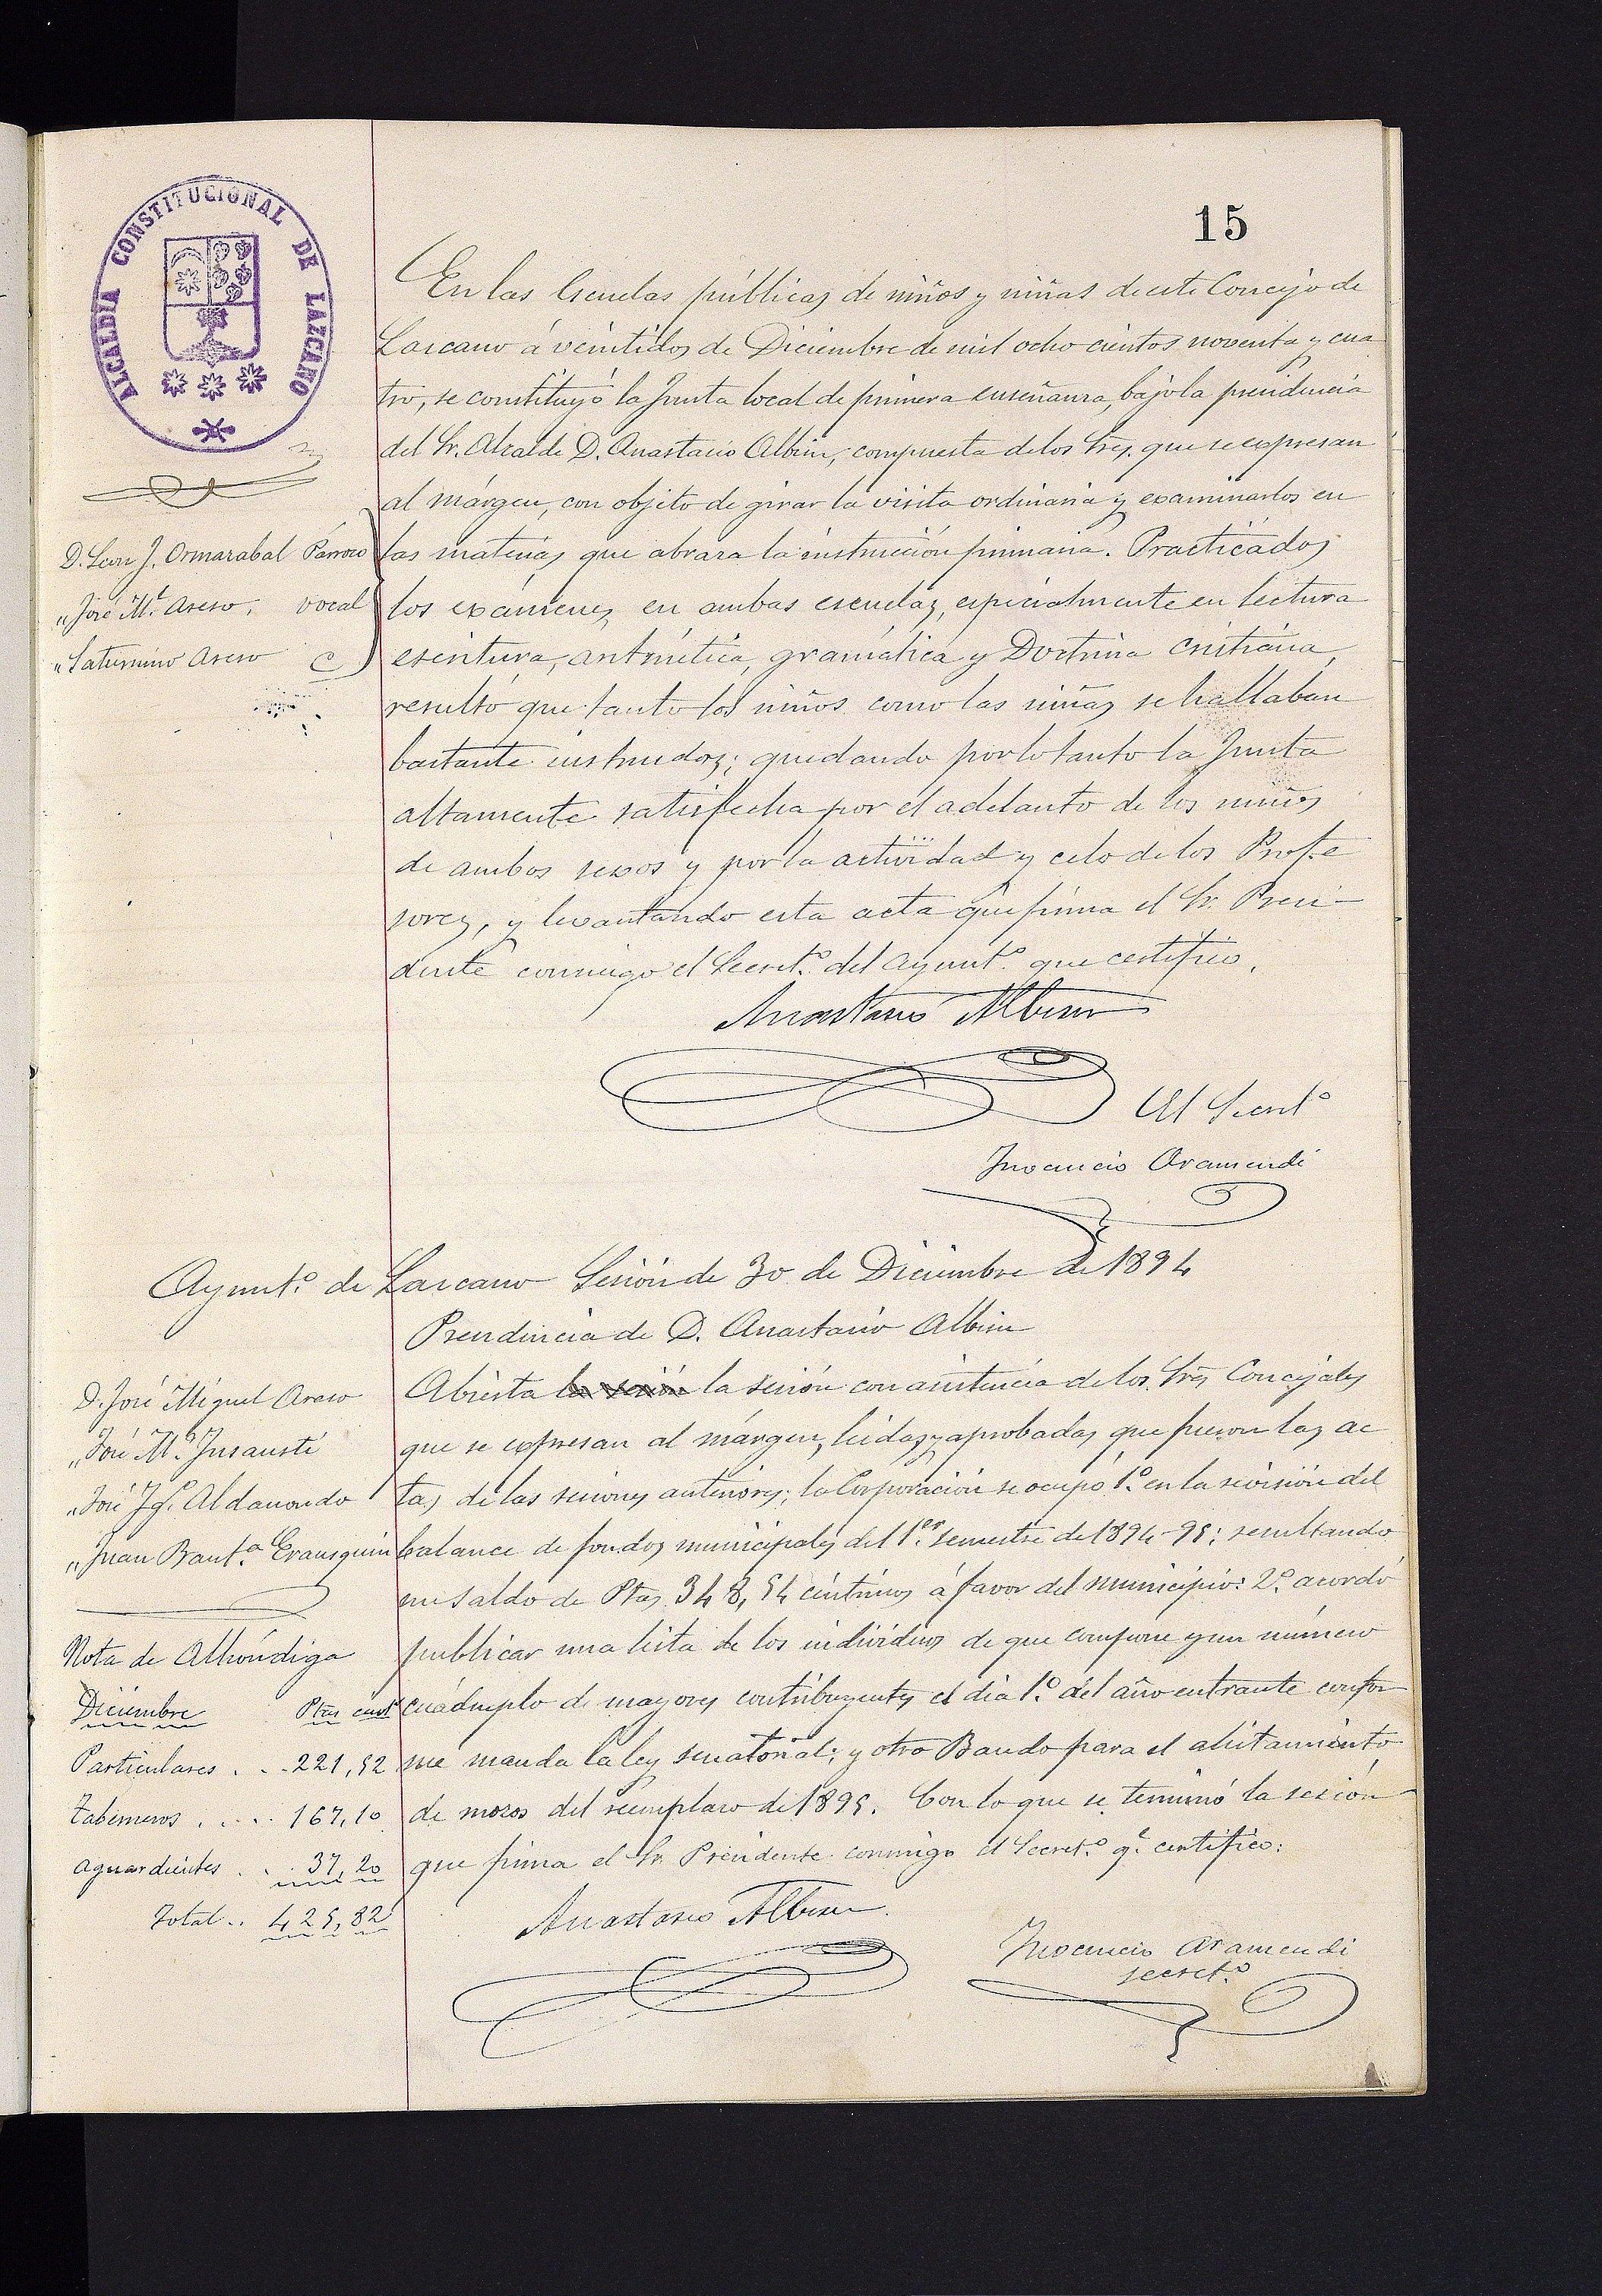 15
ALCALDIA CONSTITUCIONAL DE LAZCANO
En las Escuelas públicas de niños y niñas de este Concejo de
Lazcano á veintidos de Diciembre de mil ocho cientos noventa y cua
tro, se constituyó la Junta local de primera enseñanza, bajo la presidencia
del Sr. Alcalde D. Anastacio Albisu, compuesta de los Sres. que se expresan
al márgen, con objeto de girar la visita ordinaria y examinarlos en
las materias que abraza la instrucción primaria. Practicados
los exámenes en ambas escuelas, especialmente en lectura
escritura, aritmética, gramática y Doctrina cristiana,
resultó que tanto los niños como las niñas se hallaban
bastante instruidos; quedando por lo tanto la Junta
altamente satisfecha por el adelanto de los niños
de ambos sexos y por la actividad y celo de los Profe
sores, y levantando esta acta que firma el Sr. Presi-
dente conmigo el Secretº. del Ayuntº. que certifico.
D. Leon J. Ormazabal Párroco
" José Mª. Aseso, vocal
" Saturnino Aseso
Anastasio Albisu
El Secretº
Inocencio Aramendi
Ayuntº. de Lazcano Sesión de 30 de Diciembre de 1894
Presidencia de D. Anastasio Albisu
Abierta la sesión la sesión con asistencia de los Sres Concejales
que se expresan al márgen, leidas y aprobadas que fueron las ac
tas de las sesiones anteriores; la Corporación se ocupó 1º. en la revisión del
balance de fondos municipales del 1er. semestre de 1894-95; resultando
un saldo de Ptas 348,54 céntimos á favor del municipio: 2º. acordó
publicar una lista de los individuos de que compone y un número
cuádruplo de mayores contribuyentes el dia 1º. del año entrante confor
me manda la ley senatorial; y otro Bando para el alistamiento
de mozos del reemplazo de 1895. Con lo que se terminó la sesión
que firma el Sr. Presidente conmigo el Secretº. qe. certifico:
D. José Miguel Aseso
" José Mª. Insausti
" José Igº. Aldanondo
" Juan Bautª. Erausquin
Nota de Alhóndiga
Diciembre Ptas cent
Particulares . . . 221,52
Taberneros . . . . 167,10
Aguardientes . . . 37,20
Total . . 425,82
Anastasio Albisu
Inocencio Aramendi
secretº.